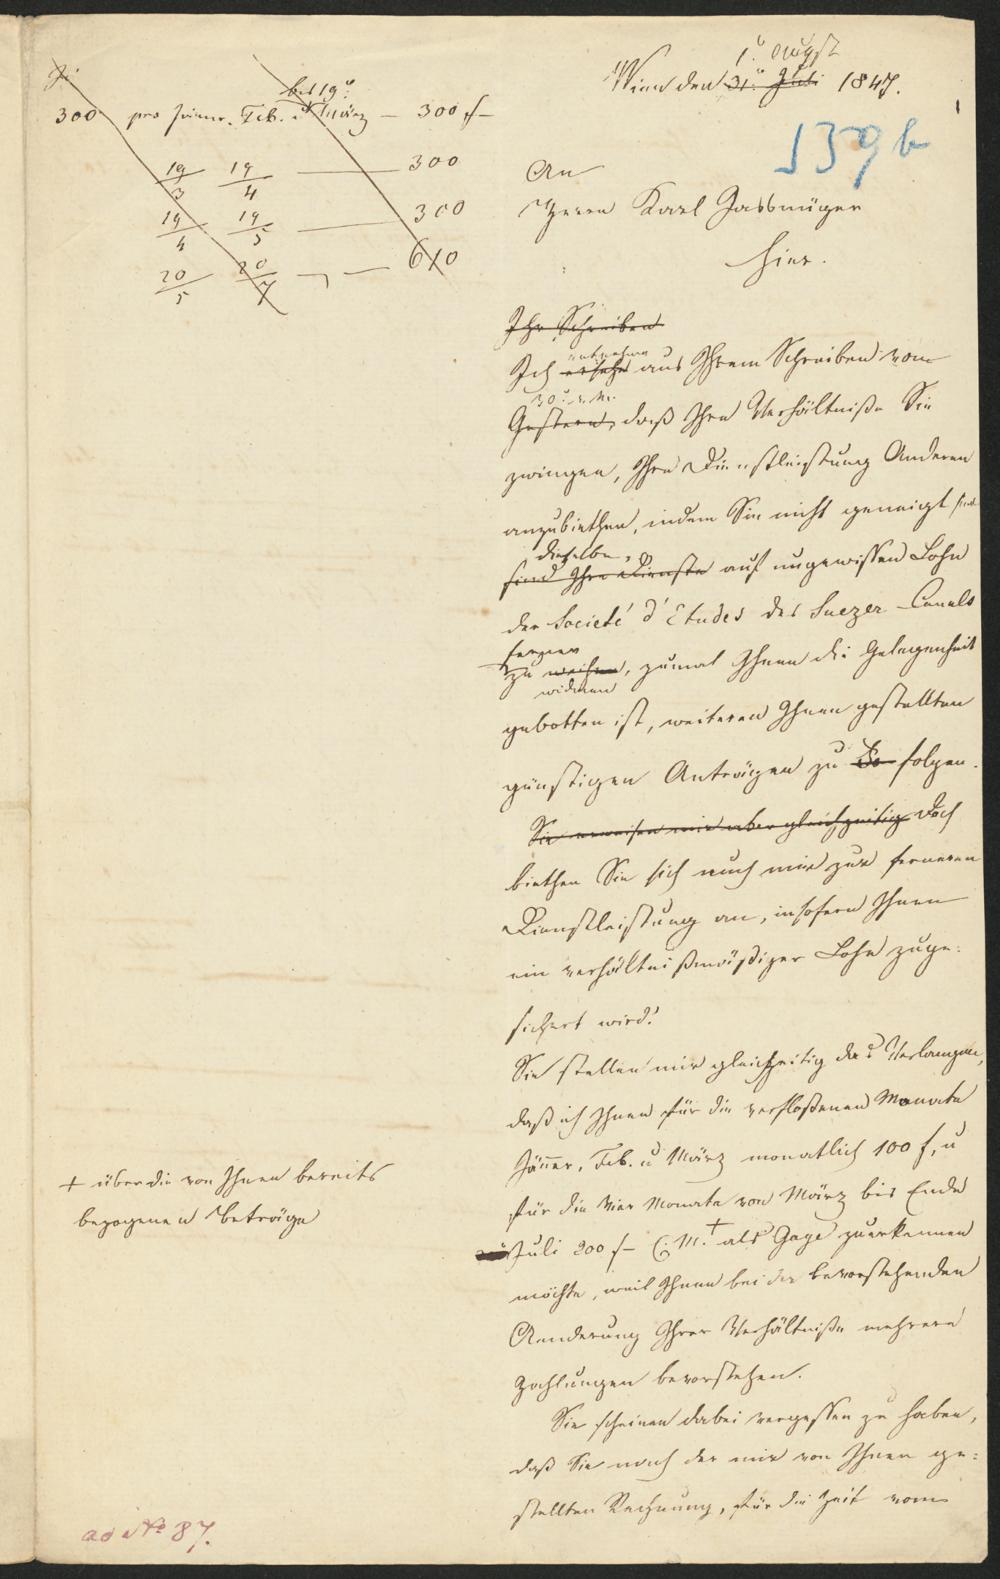 1t August
Wien den 31t Juli 1847.
539 b
An
Herrn Karl Gassmüger
hier.
bis 19t
300 pro Jänner. Feb. u März — 300 f—
19/3 19/4 — 300
19/4 19/5 — 300
20/5 20/7 — 600
Ihr Schreiben
entnehme
Ich ersehe aus Ihrem Schreiben vom
30t v. M.
Gestern, daß Ihre Verhältniße Sie
zwingen, Ihre Dienstleistung Anderen
anzubiethen, indem Sie nicht geneigt sind
dieselbe,
sind Ihre Dienste auf ungewissen Lohn
der Societé d'Etudes des Suezer-Canals
ferner
zu weihen, zumal Ihnen die Gelegenheit
widmen
gebothen ist, weiteren Ihnen gestellten
günstigen Anträgen zu folgen.
Sie erweisen mir aber gleichzeitig Doch
biethen Sie sich auch mir zur ferneren
Dienstleistung an, insofern Ihnen
ein verhältnißmäßiger Lohn zuge-
sichert wird.
Sie stellen mir gleichzeitig das Verlangen,
daß ich Ihnen für die verfloßenen Monate
Jänner, Feb. u März monatlich 100 f, u
für die vier Monate von März bis Ende
Juli 200 f— C. M. + als Gage zuerkennen
möchte, weil Ihnen bei der bevorstehenden
Aenderung Ihrer Verhältniße mehrere
Zahlungen bevorstehen.
+ über die von Ihnen bereits
bezogenen Beträge
Sie scheinen dabei vergessen zu haben,
daß Sie nach der mir von Ihnen ge-
stellten Rechnung, für die Zeit vom
ad No 87.